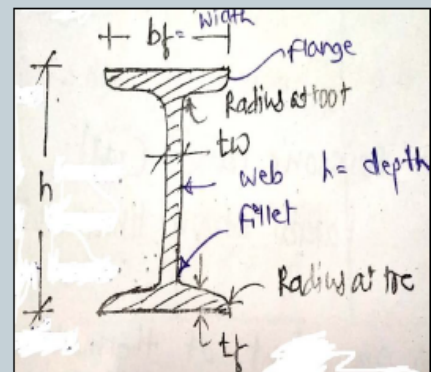 bf = width
flange
Radius at root
tw
web h = depth
h
fillet
Radius at toe
tf